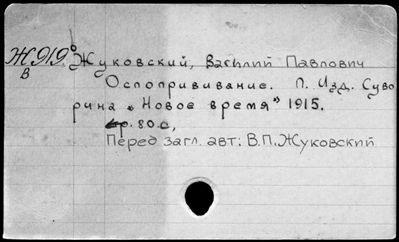 Ж919
В
Жуковский, Василий Павлович
Оспопрививание. П. Изд. Суво
рина "Новое время" 1915.
80 с,
Перед загл. авт: В.П.Жуковский